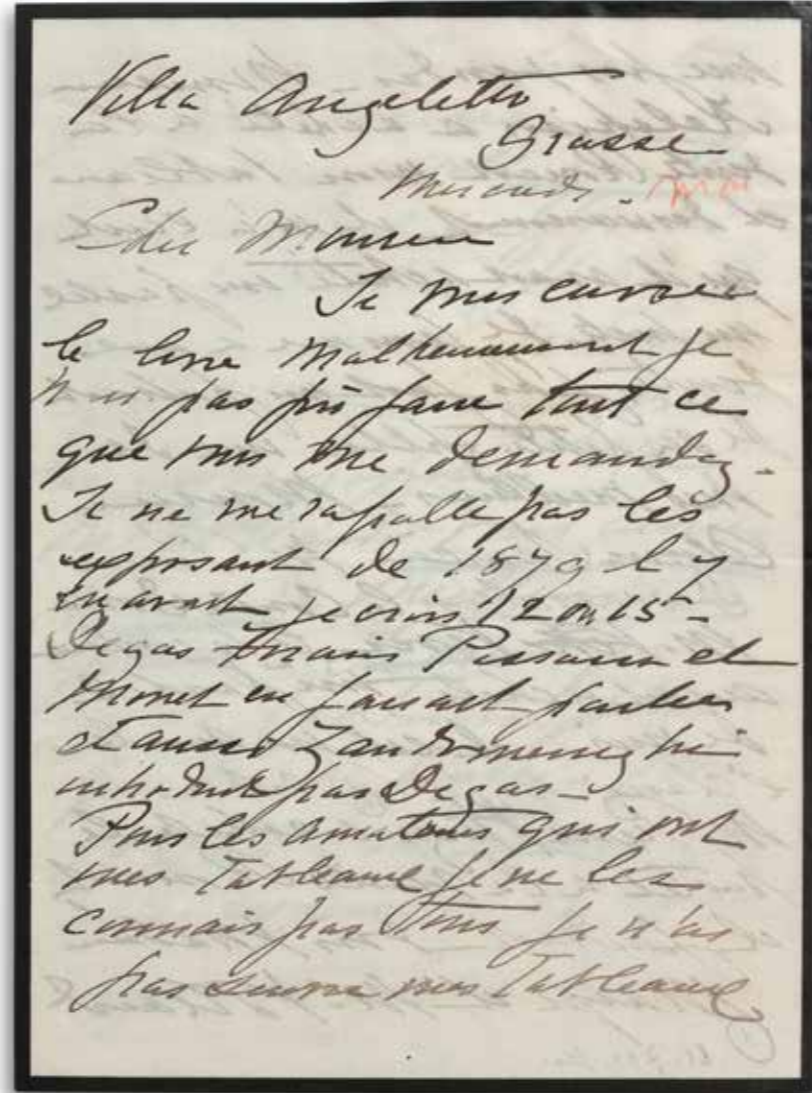 Villa Angeletto
Grasse
Mercredi.
Cher Monsieur
Je vous envoie
le livre Malheureusement je
n'ai pas pu faire tout ce
que vous me demandez.
Je ne me rapelle pas les
exposant de 1879 il y
en avait je crois 12 ou 15 -
Degas Pissarro et
Monet en faisait parties
et aussi Zandomeneghi
introduit par Degas -
Pour les amateurs qui ont
mes Tableaux je ne les
connais pas tous je n'ai
pas suivie mes Tableaux